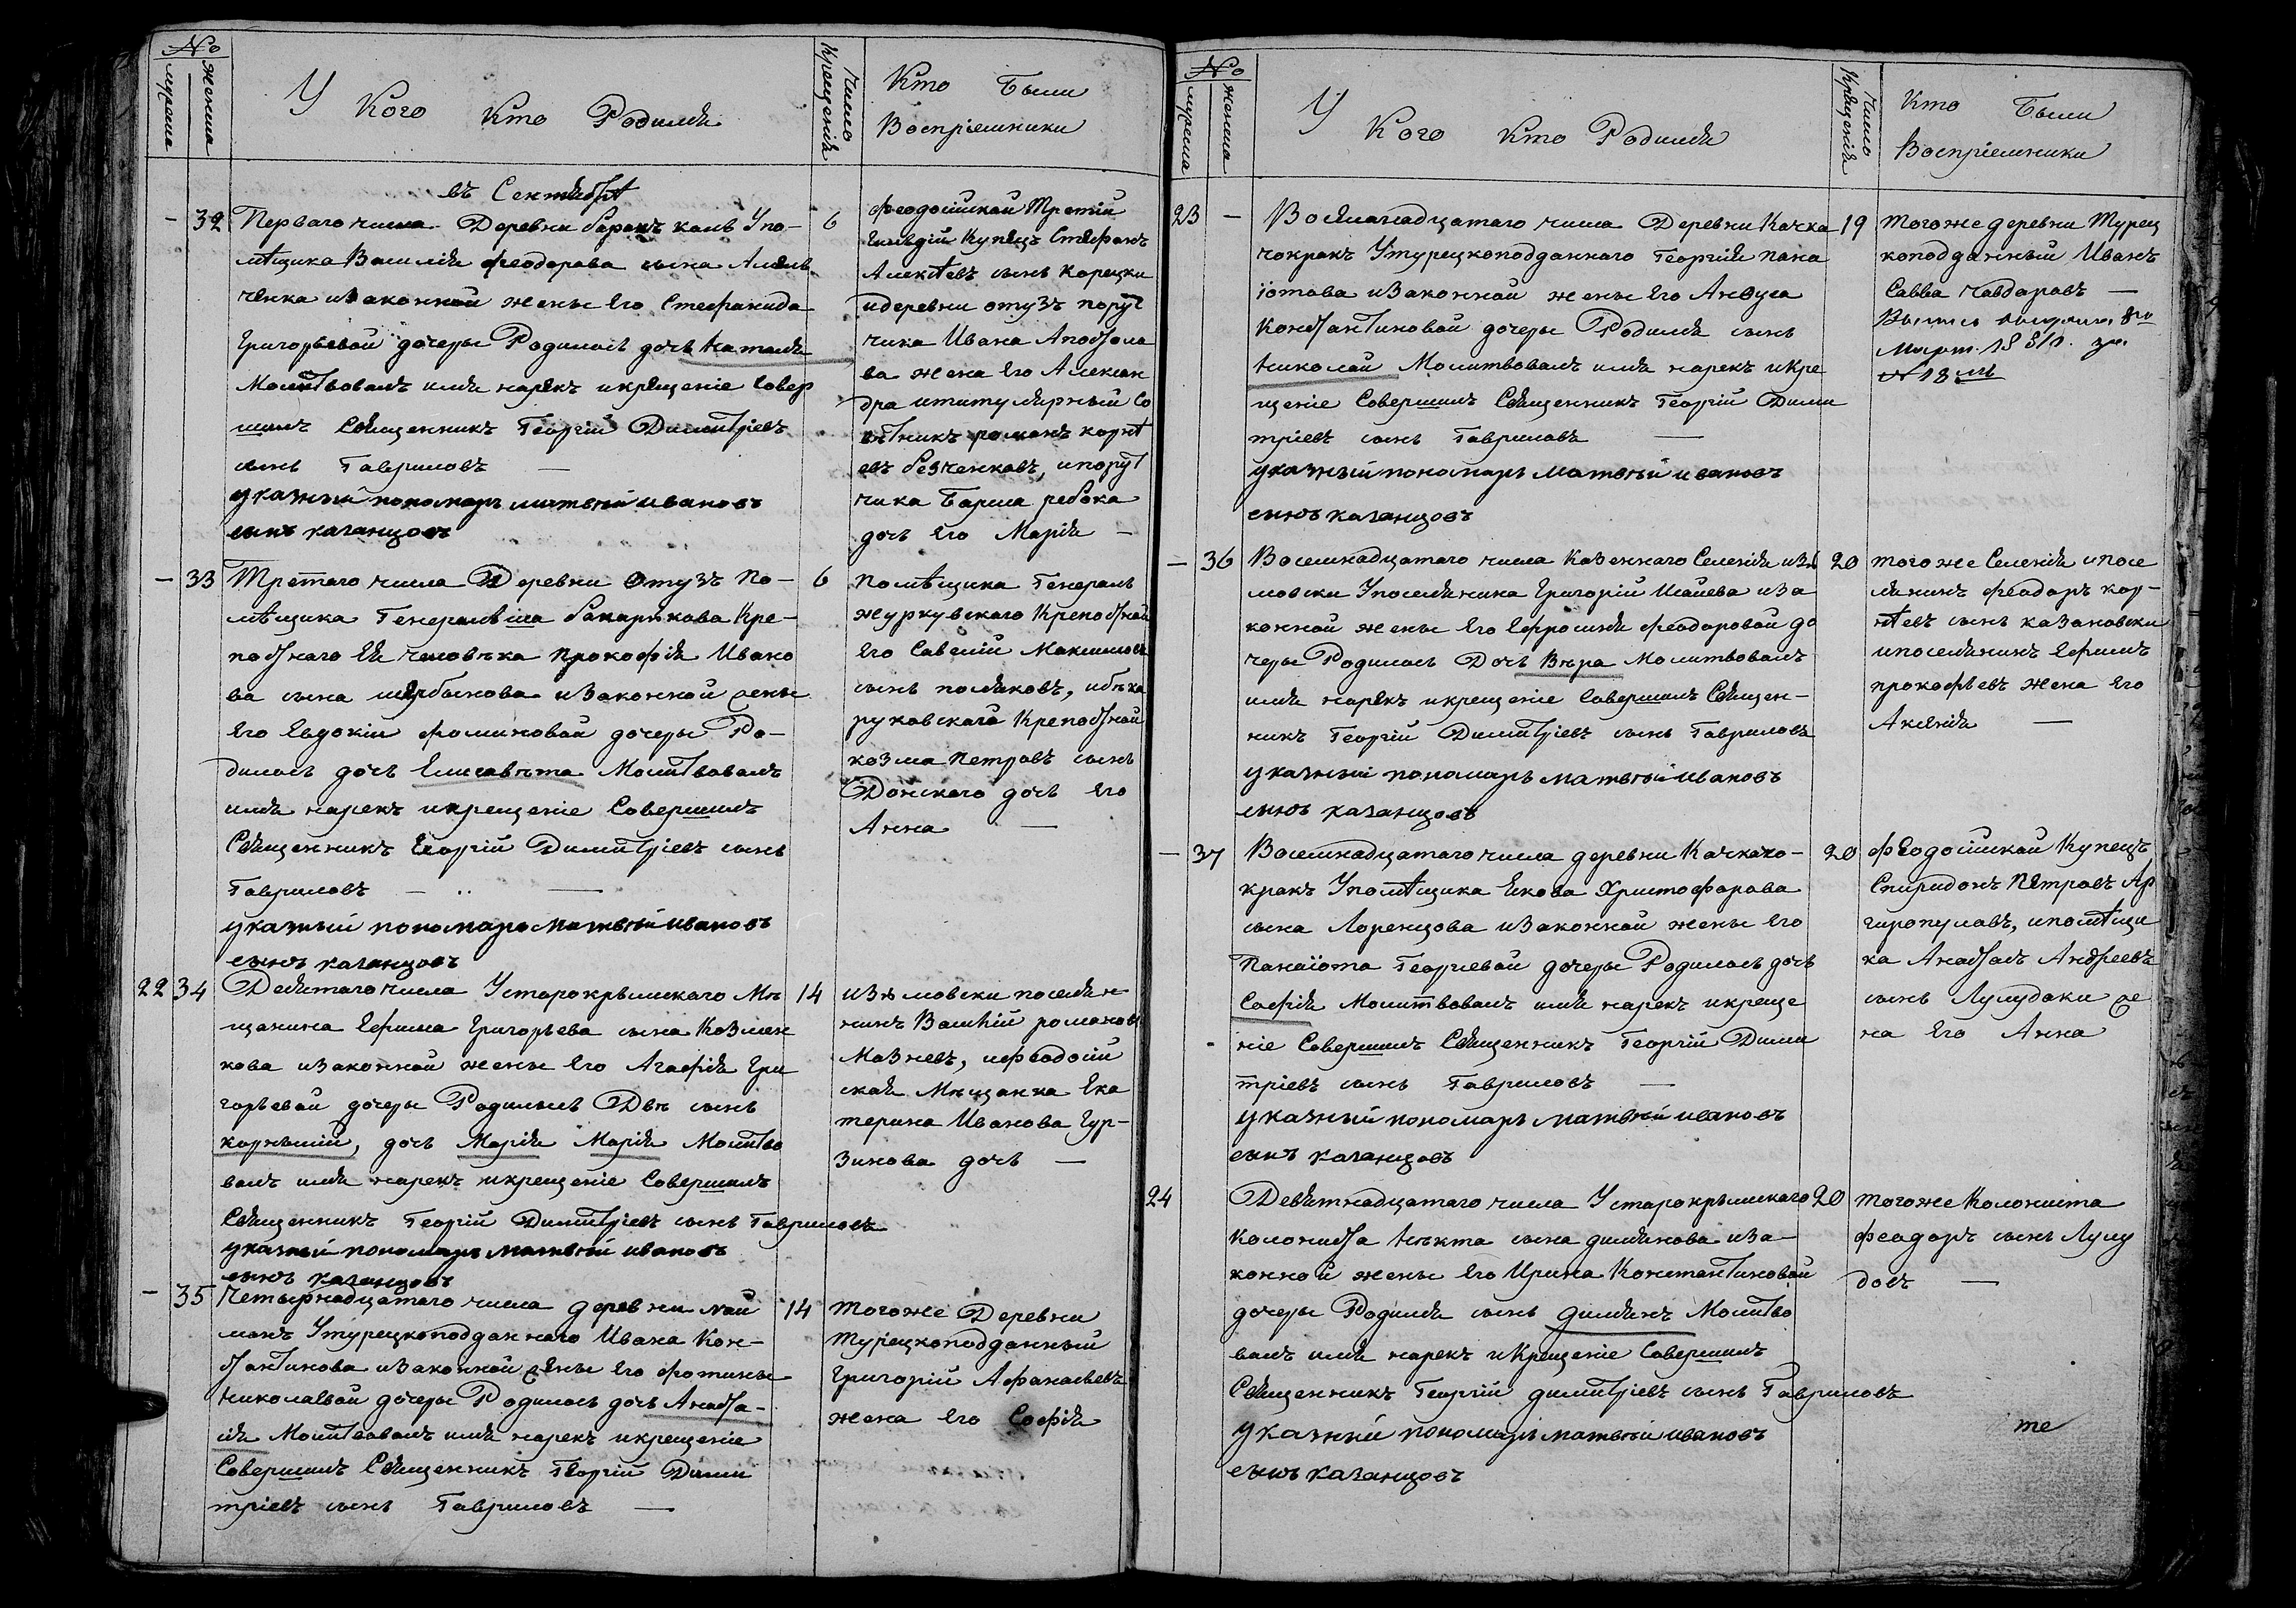 №
мужеска
женска
У Кого Кто Родился
Число Крещенія
Кто Были
Воспріемники
въ Сентябрѣ
- 32
Перваго числа Деревни баракъ
мѣщика Василія феодорова сына
ченка изаконной жены Его Стефанида
Григорьевой дочеры Родилась дочь Наталія
Молитвовалъ имя нарекъ икрещеніе Совер
шилъ Священникъ Георгій Димитріевъ
сынъ Гавриловъ —
указный пономарь матвѣй ивановъ
сынъ казанцовъ
6
феодосійскай Третій
Гильдій Купецъ Стефанъ
Алексѣевъ сынъ Корецки
идеревни отузъ порут
чика Ивана Апостола
ва жена Его Алексан
дра ититулярный Со
вѣтникъ романъ корнѣ
евъ безченковъ, ипорут
чика
дочь Его Марія —
- 33
Третаго числа Деревни Отузъ По-
мѣщика Генеральша Кре-
постнаго Ея человѣка Прокофія Ивано
ва сына изаконной жены
Его Евдокіи фоминовой дочеры Ро-
дилась дочь Елисавѣта Молитвовалъ
имя нарекъ икрещеніе Совершилъ
Священникъ Георгій Димитріевъ сынъ
Гавриловъ —
указный пономарь матвѣй ивановъ
сынъ казанцовъ
6
Помѣщика Генералъ
журкувскаго Крепостной
Его Савелій Максимовъ
сынъ поляковъ,
руковскаго Крепостной
козма Петровъ сынъ
Донскаго дочь Его
Анна —
22 34
Девятаго числа Устарокрымскаго Мѣ
щанина Ефима Григорьева сына Козмен
кова изаконной жены Его Агафія Гри
горьевой дочеры Родились Двѣ сынъ
корнилій, дочь Марія Марія Молитво
валъ имя нарекъ икрещеніе Совершилъ
Священникъ Георгій Димитріевъ сынъ Гавриловъ
указный пономарь матвѣй ивановъ
сынъ казанцовъ
14
изюмовски поселян
нинъ Василій романовъ
Мазневъ, ифеодосій
ская Мѣщанка Ека
терина Иванова Гур-
зинова дочь —
- 35
Четырнадцатаго числа деревни
манъ Утурецкоподданнаго Ивана Кон-
стантинова изаконной жены Его фотины
Николаевой дочеры Родилась дочь Анаста-
сія Молитвовалъ имя нарекъ икрещеніе
Совершилъ Священникъ Георгій Дими
тріевъ сынъ Гавриловъ —
14
Тогоже Деревни
Турецкоподданный
Григорій Афанасьевъ
жена Его Софія
№
мужеска
женска
У Кого Кто Родился
Число Крещенія
Кто Были
Воспріемники
23 -
Восемнадцатаго числа Деревни Качка
чокракъ Утурецкоподданнаго Георгія пана
іотова изаконной жены Его Анфуса
Константиновой дочеры Родился сынъ
Николай Молитвовалъ имя нарекъ икре
щеніе Совершилъ Священникъ Георгій Дими
тріевъ сынъ Гавриловъ —
указный пономарь матвѣй ивановъ
сынъ казанцовъ
19
Тогоже деревни Турец
коподданный Иванъ
Савва Чавдаровъ —
- 36
Восемнадцатаго числа Казеннаго Селенія изю
мовски Упоселяника Григорій Исаиева иза
конной жены Его Ефросинія феодоровой до
черы Родилась Дочь Вѣра Молитвовалъ
имя нарекъ икрещеніе Совершилъ Священ-
никъ Георгій Димитріевъ сынъ Гавриловъ
указный пономарь матвѣй ивановъ
сынъ казанцовъ
20
Тогоже Селенія ипосе
лянинъ феодоръ кор-
нѣевъ сынъ казановски
ипоселянинъ Ефимъ
прокофьевъ жена Его
Аксенія —
- 37
Восемнадцатаго числа деревни Качкачо-
кракъ Упомѣщика Якова Христофорова
сына Лоренцова изаконной жены Его
Панаіота Георгіевой дочеры Родилась дочь
Софія Молитвовалъ имя нарекъ икреще
ніе Совершилъ Священникъ Георгій Дими
тріевъ сынъ Гавриловъ —
указный пономарь матвѣй ивановъ
сынъ казанцовъ
20
феодосійскай Купецъ
Спиридонъ Петровъ Ар
гиропуловъ, ипомѣщи
ка Анастасъ Андреевъ
сынъ Лулудаки же
на Его Анна
24
Девятнадцатаго числа Устарокрымскаго
Колониста сына димянова иза-
конной жены Его Ирина Константиновой
дочеры Родился сынъ димянъ Молитво
валъ имя нарекъ икрещеніе Совершилъ
Священникъ Георгій димитріевъ сынъ Гавриловъ
указный пономарь матвѣй ивановъ
сынъ казанцовъ
20
Тогоже Колониста
феодоръ сынъ Лулу
досъ —
те